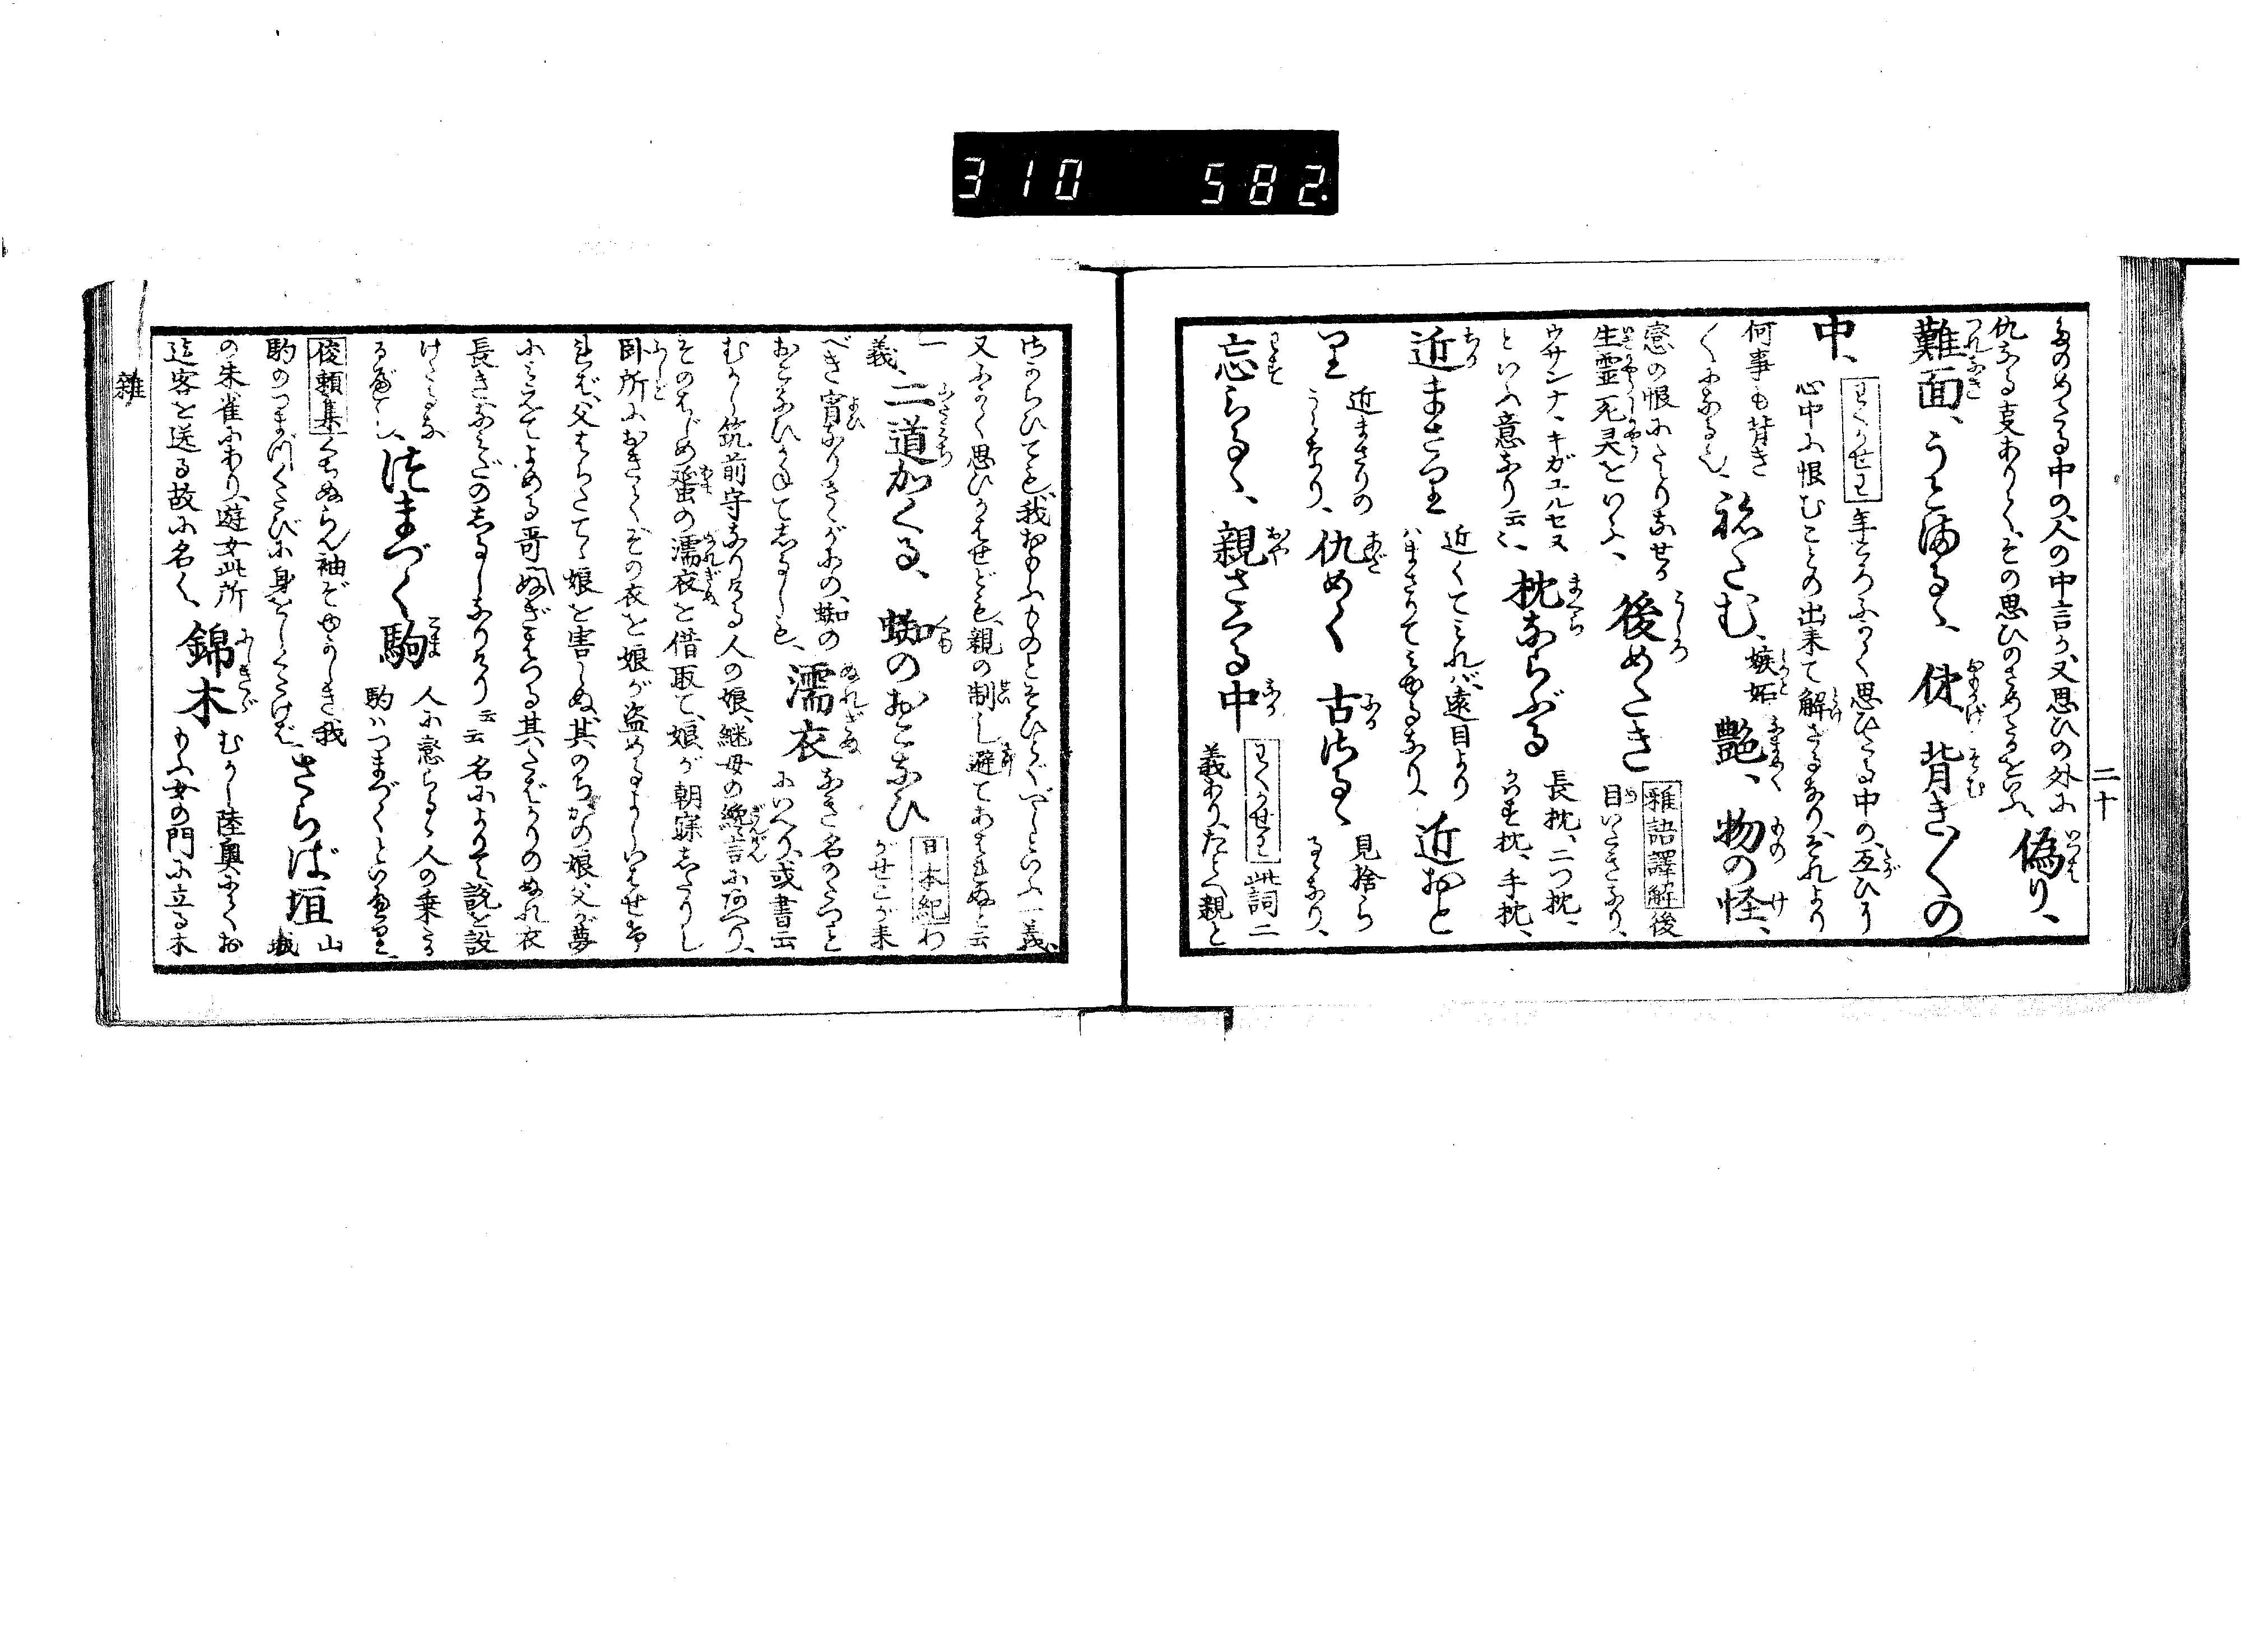 310 582.
二十
なのめたる中の、人の中言か、又思ひの外に
仇なる支ありて、その思ひのさめたるをいふ、偽り、
難面、うとまるゝ、俤 背き〳〵の
中、わくかせわ 年ころふかく思ひたる中の、互ひに
心中に恨むことの出来て解ざるなり、それより
何事も背き
くになるも、ねたむ、嫉妬、艶、物の怪、
恋の恨にとりなせる
生霊死灵といふ、後めたき 雅語譯解 後
目いたきなり、
ウサンナ、キガユルセヌ
といふ意なり云々、枕ならぶる 長枕、二つ枕、
かはす枕、手枕、
近まさり 近くてみれバ、遠目より
ハまさりてみゆるなり、近おと
り 近まさりの
うらなり、仇めく 古さるゝ 見捨ら
るゝなり、
忘らるゝ、親さくる中 わくかせわ 此詞二
義あり、たとへ親と
はからひても、我おもふものとそひとぐべしといふ一義、
又ふかく思ひかはせども、親の制し避てあはせぬと云
一
義、二道かくる、蜘のおこなひ 日本紀 わ
がせこが来
べき宵なりさゝがにの、蜘の
おこなひかねてしるしも、濡衣 なき名のたつを
にいへり、或書云
むかし筑前守なりける人の娘、継母の讒言にあへり、
そのはじめ蜑の濡衣を借取て、娘が朝寐したりし
臥所におきて、その衣を娘が盗めるよしいはせけ
れば、父はらたてゝ娘を害しぬ、其のちかの娘父が夢
にみえてよめる哥 ぬぎきする其たばかりのぬれ衣
長きなみだのためしなりけり云云 名によりて説を設
けたるな
るべし、つまづく駒 人に恋らるゝ人の乗る
駒ハつまづくといへり、
俊頼集 くちぬらん袖ぞゆかしき我
駒のつまづくたびに身をしくだけば、さらば垣 山城
の朱雀にあり、遊女此所
迄客を送る故に名く、錦木 むかし陸奥にてお
もふ女の門に立る木
雑